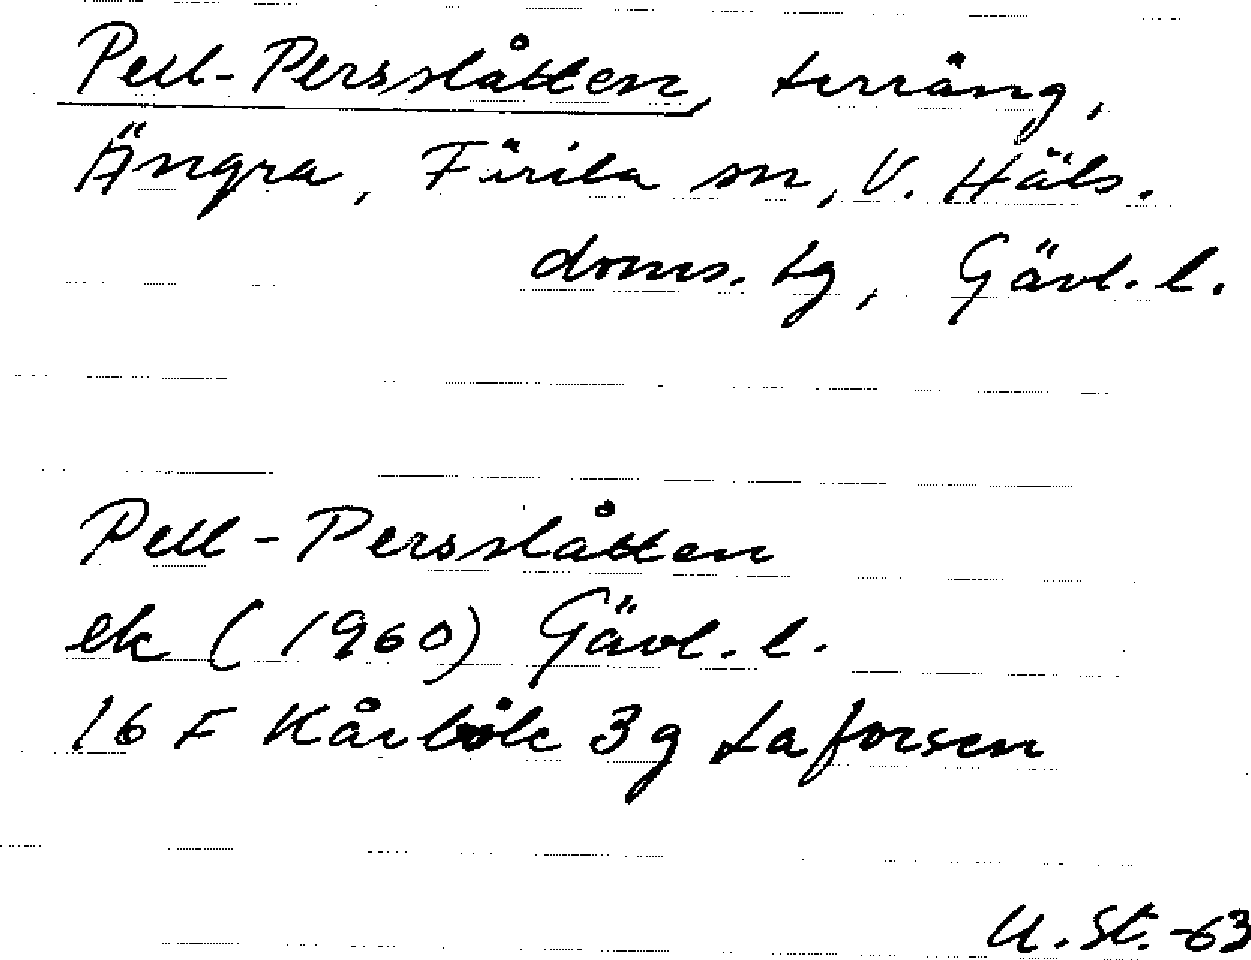 Pell-Persslåtten, terräng,
Ängra, Färila sn, V. Häls.
doms. tg, Gävl. l.
Pell-Persslåtten
ek (1960) Gävl. l.
16 F Kårböle 3g Laforsen
U. St. -63